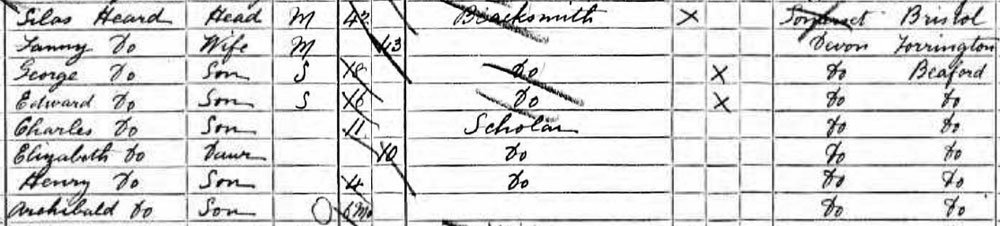 Silas Heard Head M 42 Blacksmith X Somerset Bristol
Fanny Do Wife M 43 Devon Torrington
George Do Son S 18 Do X Do Beaford
Edward Do Son S 16 Do X Do Do
Charles Do Son 11 Scholar Do Do
Elizabeth Do Daur 10 Do Do Do
Henry Do Son 4 Do Do Do
Archibald Do Son 6 Mo Do Do